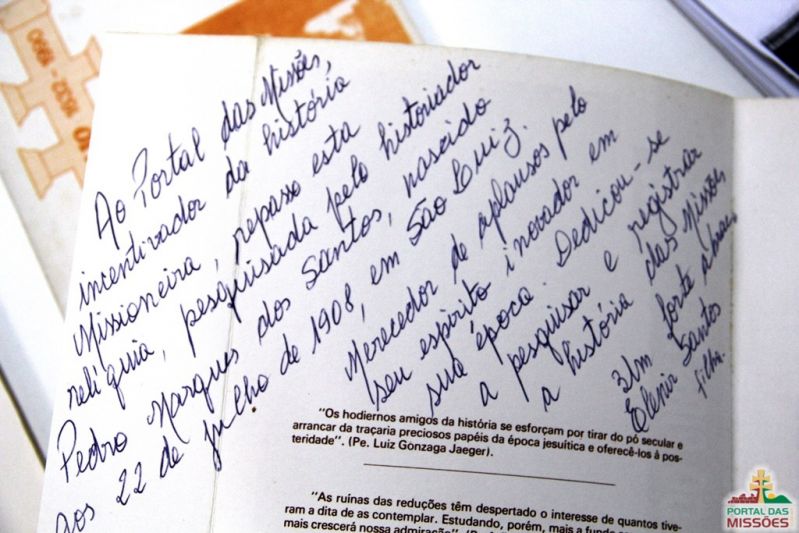 Ao Portal das Missões,
incentivador da história
Missioneira, repasso esta
relíquia, pesquisada pelo historiador
Pedro Marques dos Santos, nascido
aos 22 de julho de 1908, em São Luiz.
Merecedor de aplausos pelo
seu espírito inovador em
sua época. Dedicou-se
a pesquisar e registrar
a história das Missões,
Um forte abraço,
Elenir Santos
filha.
"Os hodiernos amigos da história se esforçam por tirar do pó secular e
arrancar da traçaria preciosos papéis da época jesuítica e oferecê-los à pos-
teridade". (Pe. Luiz Gonzaga Jaeger).
"As ruínas das reduções têm despertado o interesse de quantos tive-
ram a dita de as contemplar. Estudando, porém, mais a
mais crescerá nossa admiração".
1632 - 1990
PORTAL DAS
MISSÕES